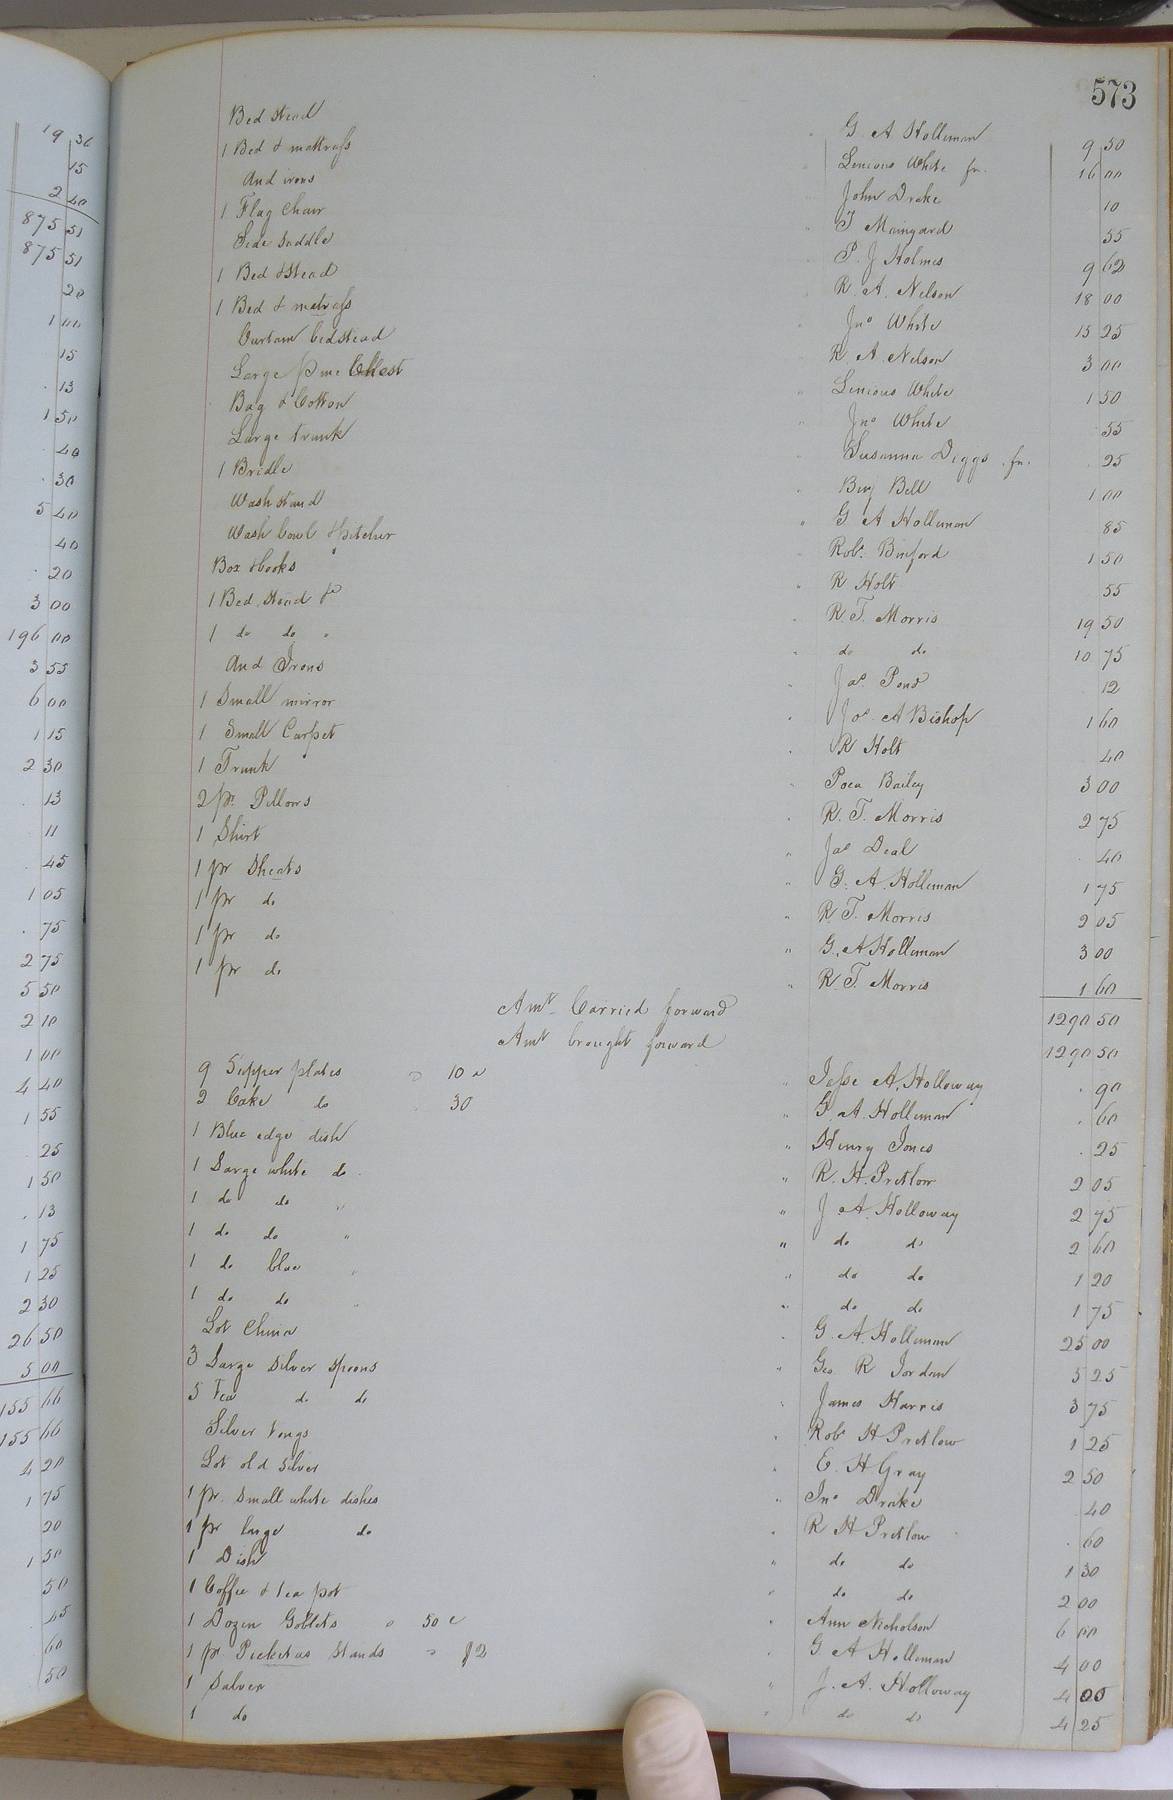 573
Bed Stead G A Holleman 9 50
1 Bed & mattrass Lenious White fn. 16 00
And irons John Drake 10
1 Flag Chair T Maingard 55
Side Saddle P. J Holmes 9 62
1 Bed & Stead R. A. Nelson 18 00
1 Bed & matrass Jno White 15 25
Curtain bedstead R A. Nelson 3 00
Large pine Chest Lenious White 1 50
Bag & Cotton Jno White 55
Large trunk Susanna Diggs fn. 25
1 Bridle Benj Bell 1 00
Wash Stand G A Holleman 85
Wash bowl & pitcher Robt. Binford 1 50
Box & books R Holt 55
1 Bed Stead &c R. T. Morris 19 50
1 do do " do do 10 75
And Irons Jas Pond 12
1 Small mirror Jos. A Bishop 1 60
1 Small Carpet R Holt 40
1 Trunk Poca Bailey 3 00
2 pr. Pillows R. T. Morris 2 75
1 Shirt Jas Deal 40
1 pr Sheats G. A. Holleman 1 75
1 pr do R. T. Morris 2 05
1 pr do G. A Holleman 3 00
1 pr do R. T. Morris 1 60
Amt Carried forward 1290 50
Amt brought forward 1290 50
9 Supper plates 10 Jesse A. Holloway 90
2 Cake do 30 G. A. Holleman 60
1 Blue edge dish Henry Jones 25
1 Large white do R. H. Pretlow 2 05
1 do do " J A. Holloway 2 75
1 do do " do do 2 60
1 do blue " do do 1 20
1 do do " do do 1 75
Lot China G. A. Holleman 25 00
3 Large Silver Spoons Geo R Jordan 5 25
5 Tea do do James Harris 3 75
Silver tongs Robt H Pretlow 1 25
Lot old Silver E. H Gray 2 50
1 pr. Small white dishes Jno Drake 40
1 pr large do R H Pretlow 60
1 Dish do do 1 30
1 Coffee & tea pot do do 2 00
1 Dozen Goblets 50 c Ann Nicholson 6 00
1 pr Stands $2 G A Holleman 4 00
1 Salver J. A. Holloway 4 00
1 do do do 4 25
19 36
15
2 40
875 51
875 51
20
1 00
15
13
1 50
40
30
5 40
40
20
3 00
196 00
3 55
6 00
1 15
2 30
13
11
45
1 05
75
2 75
5 50
2 10
1 00
4 40
1 55
25
1 50
13
1 75
1 25
2 30
26 50
5 00
155 66
155 66
4 20
1 75
20
1 50
50
45
60
50